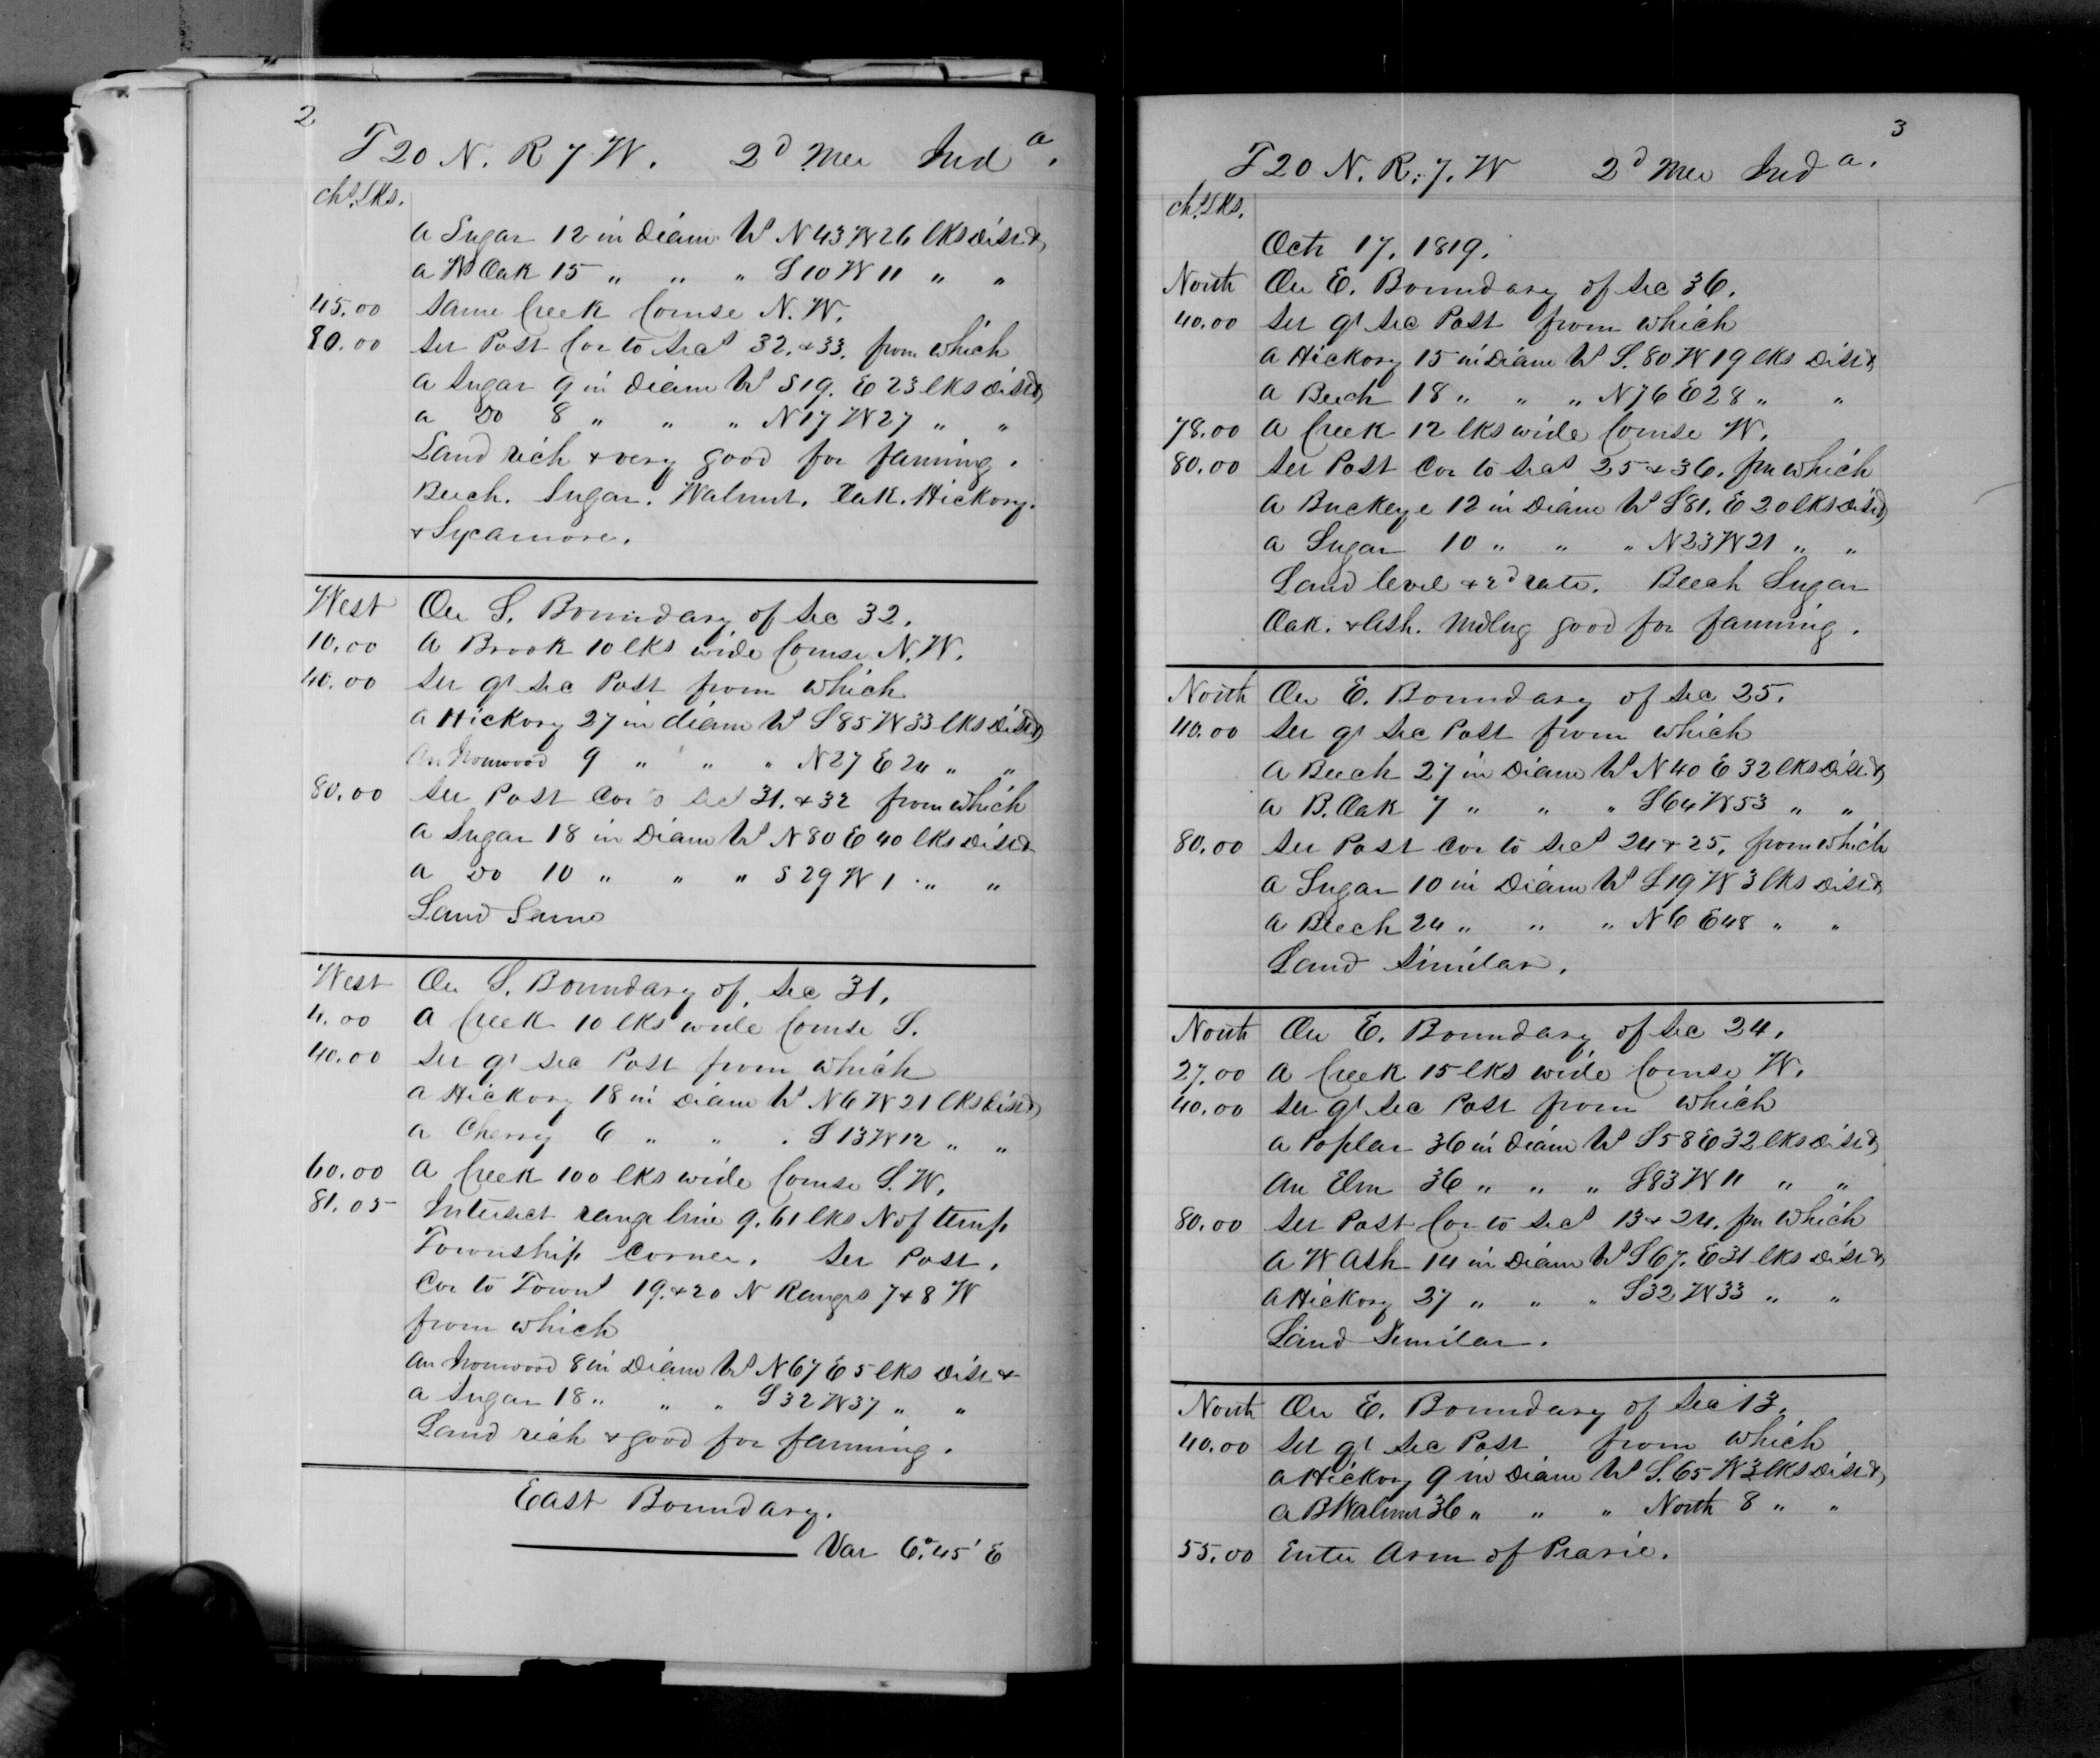 2
T 20 N. R 7 W. 2d Mer Inda.
chs. Lks.
a Sugar 12 in diam bs N 43 W 26 lks dist &
a W Oak 15 " " " S 10 W 11 " "
45.00 Same Creek Course N.W.
80.00 Set Post Cor to Secs 32. & 33. from which
a Sugar 9 in diam bs S 19. E 23 lks dist &
a Do 8 " " " N 17 W 27 " "
Land rich & very good for farming.
Beech. Sugar. Walnut. Oak. Hickory.
& Sycamore.
West On S. Boundary of Sec 32.
10.00 A Brook 10 lks wide Course N.W.
40.00 Set qr Sec Post from which
a Hickory 27 in diam bs S 85 W 33 lks dist &
An Ironwood 9 " " " N 27 E 24 " "
80.00 Set Post Cor to Secs 31. & 32 from which
a Sugar 18 in Diam bs N 80 E 40 lks dist &
a Do 10 " " " S 29 W 1 " "
Land Same
West On S. Boundary of Sec 31.
4.00 A Creek 10 lks wide Course S.
40.00 Set qr Sec Post from which
a Hickory 18 in Diam bs N 6 W 21 lks dist &
a Cherry 6 " " " S 13 W 12 " "
60.00 A Creek 100 lks wide Course S.W.
81.05 Intersect range line 9.61 lks N of temp
Township Corner. Set Post.
Cor to Towns 19. & 20 N Ranges 7 & 8 W
from which
An Ironwood 8 in Diam bs N 67 E 5 lks dist &
a Sugar 18 " " " S 32 W 37 " "
Land rich & good for farming.
East Boundary.
Var 6.°45' E
3
T 20 N. R. 7. W 2d Mer Inda.
chs. Lks.
Octr 17. 1819.
North On E. Boundary of Sec 36.
40.00 Set qr Sec Post from which
a Hickory 15 in Diam bs S. 80 W 19 lks dist &
a Beech 18 " " " N 76 E 28 " "
78.00 A Creek 12 lks wide Course W.
80.00 Set Post Cor to Secs 25 & 36. fm which
a Buckeye 12 in Diam bs S 81. E 20 lks dist &
a Sugar 10 " " " N 23 W 21 " "
Land level & 2d rate. Beech Sugar
Oak. & Ash. Mdlng good for farming.
North On E. Boundary of Sec 25.
40.00 Set qr Sec Post from which
a Beech 27 in Diam bs N 40 E 32 lks dist &
a B. Oak 7 " " " S 64 W 53 " "
80.00 Set Post Cor to Secs 24 & 25. from which
a Sugar 10 in Diam bs S 19 W 3 lks dist &
a Beech 24 " " " N 6 E 48 " "
Land Similar.
North On E. Boundary of Sec 24.
27.00 A Creek 15 lks wide Course W.
40.00 Set qr Sec Post from which
a Poplar 36 in diam bs S 58 E 32 lks dist &
An Elm 36 " " " S 83 W 11 " "
80.00 Set Post Cor to Secs 13 & 24. fm which
a W Ash 14 in Diam bs S 67. E 31 lks dist &
a Hickory 27 " " " S 32 W 33 " "
Land Similar.
North On E. Boundary of Sec 13.
40.00 Set qr Sec Post from which
a Hickory 9 in Diam bs S. 65 W 3 lks dist &
a B Walnut 36 " " " North 8 " "
55.00 Enter Arm of Prarie.